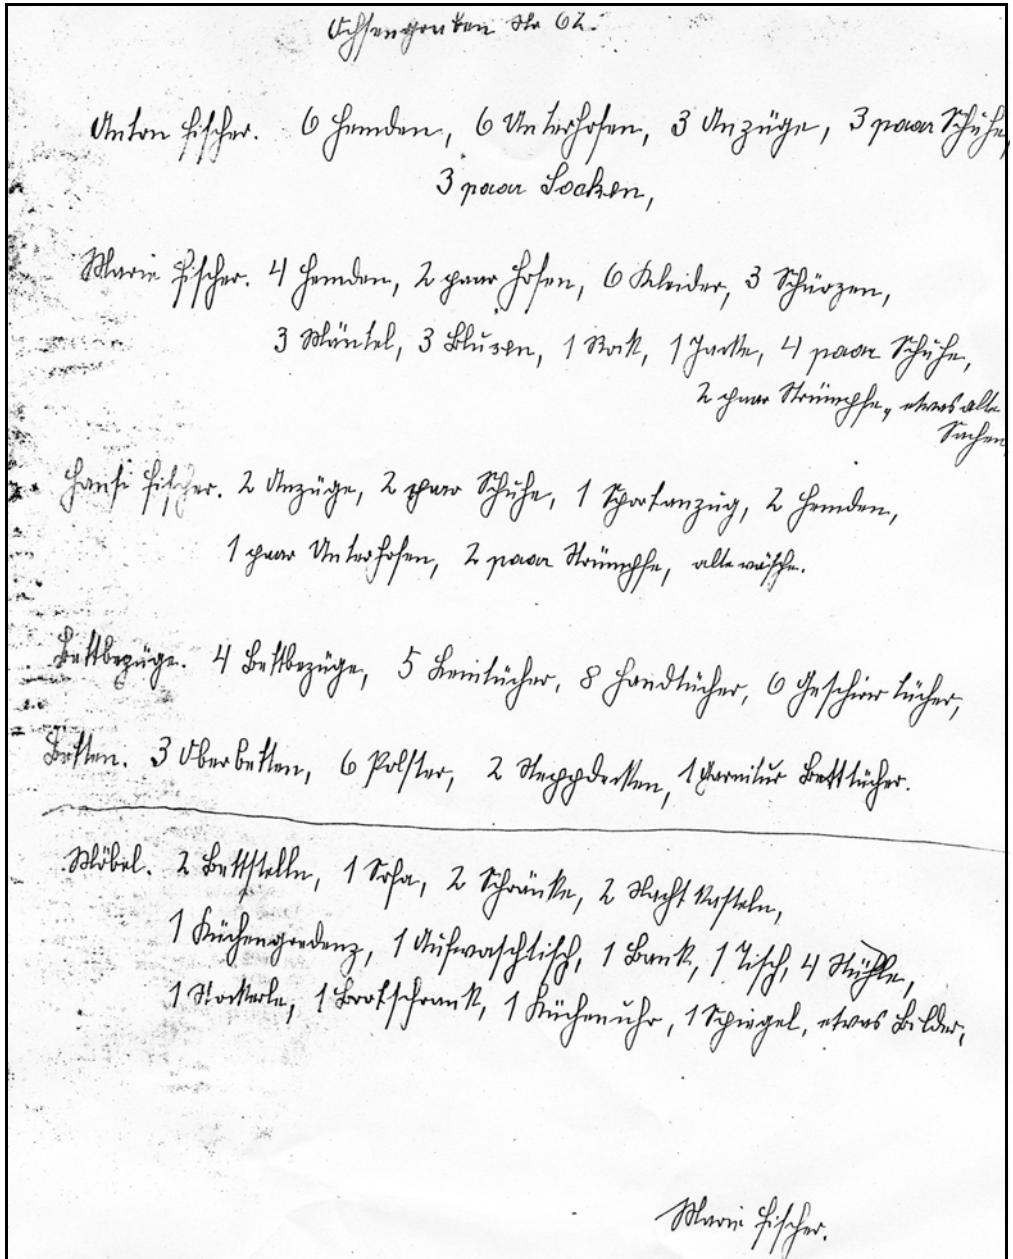 Ochsengraben No 62.
Anton Fischer. 6 Hemden, 6 Unterhosen, 3 Anzüge, 3 paar Schuhe
3 paar Socken,
Marie Fischer. 4 Hemden, 2 paar Hosen, 6 Kleider, 3 Schürzen,
3 Mäntel, 3 Blusen, 1 Rock, 1 Jacke, 4 paar Schuhe,
2 paar Strümpfe, etwas alte
Sachen
Hansi Fischer. 2 Anzüge, 2 paar Schuhe, 1 Sportanzug, 2 Hemden,
1 paar Unterhosen, 2 paar Strümpfe, alte wäsche.
Bettbezüge. 4 Bettbezüge, 5 Leintücher, 8 Handtücher, 6 Geschirrtücher,
Betten. 3 Oberbetten, 6 Polster, 2 Steppdecken, 1 Garnitur Betttücher.
Möbel. 2 Bettstelln, 1 Sofa, 2 Schränke, 2 Nacht Kasteln,
1 Küchengredenz, 1 Aufwaschtisch, 1 Bank, 1 Tisch, 4 Stühle,
1 Stockerle, 1 Brotschrank, 1 Küchenuhr, 1 Spiegel, etwas Bilder,
Marie Fischer.